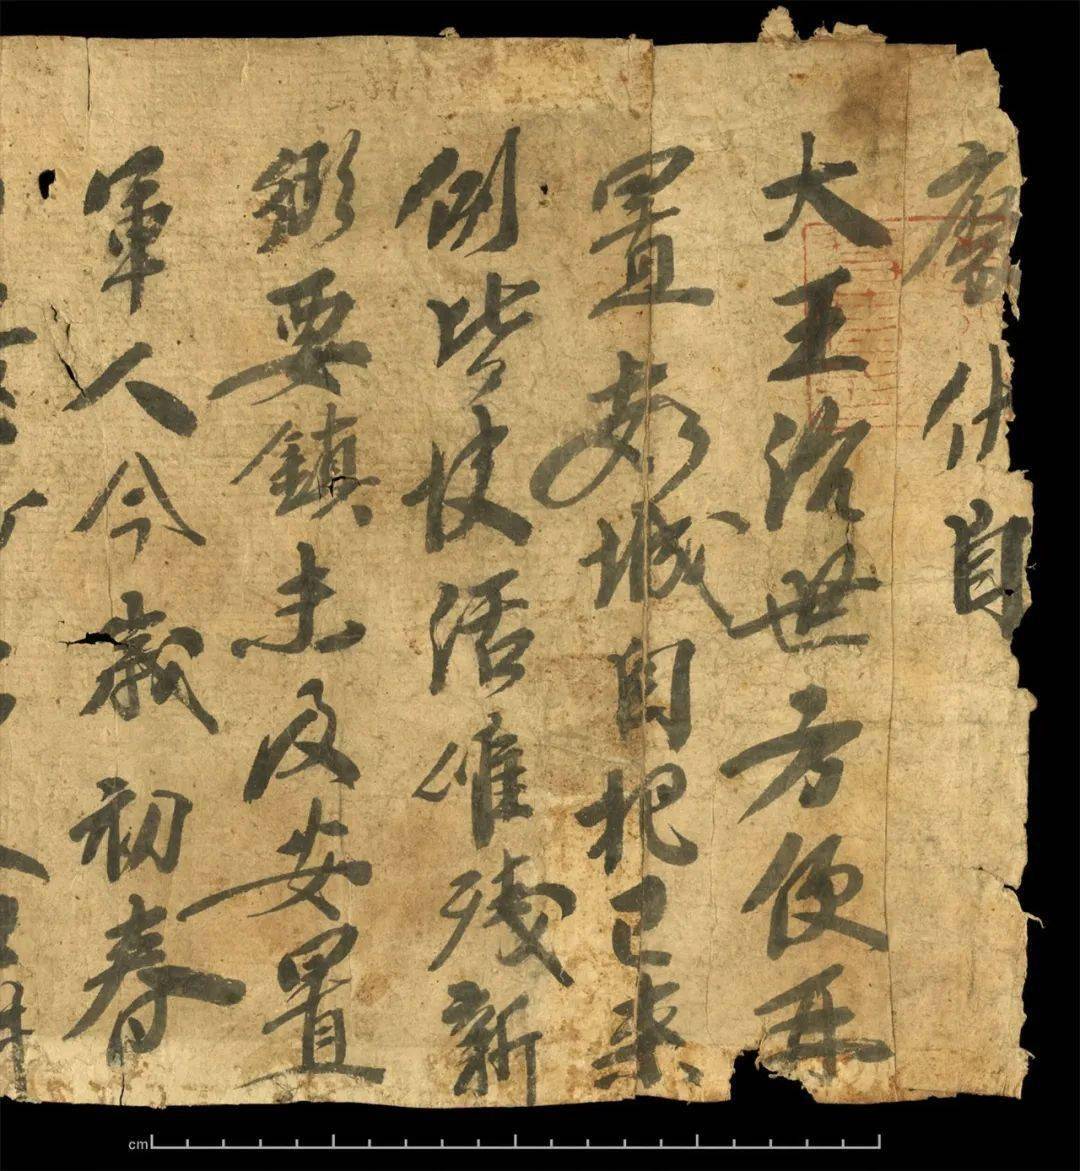 廟伏自
大王治世方便再
置數城自把已來
例皆快活唯殘新
鄉要鎮未及安置
軍人今歲初春